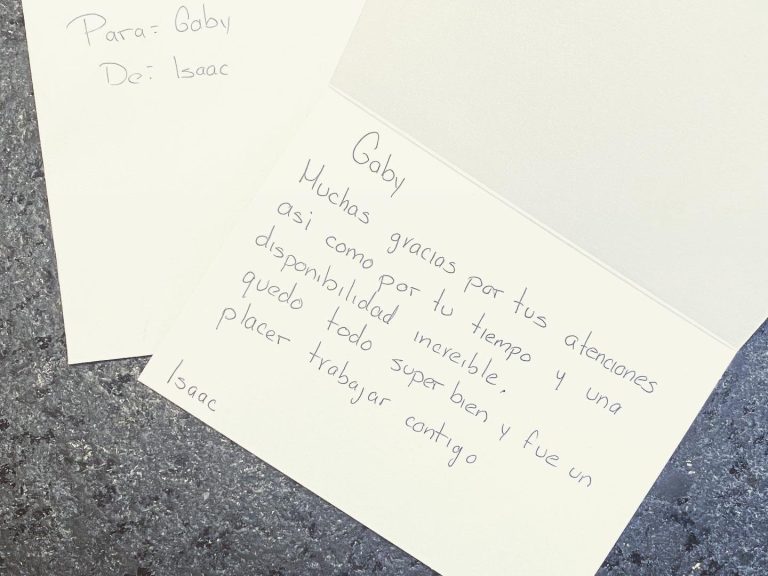 Para: Gaby
De: Isaac
Gaby
Muchas gracias por tus atenciones
asi como por tu tiempo y una
disponibilidad increible.
quedo todo super bien y fue un
placer trabajar contigo
Isaac